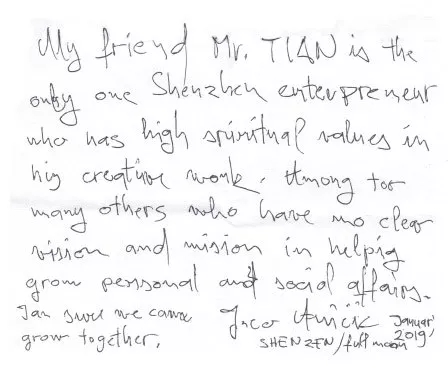 My friend Mr. TIAN is the
only one Shenzhen enterpreneur
who has high spiritual values in
his creative work. Among too
many others who have no clear
vision and mission in helpig
grow personal and social affairs.
Jan sure we canne
grow together,
Januar'
2019'
SHENZEN/full moon